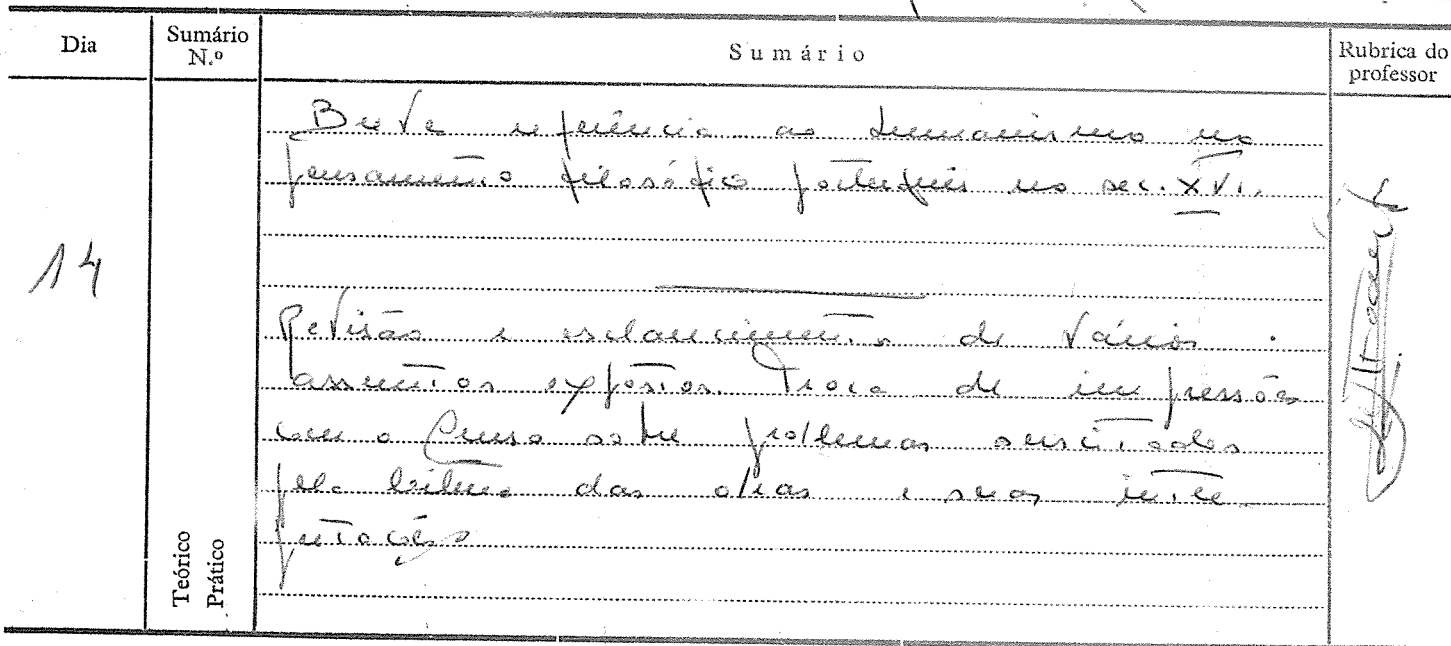 Dia
Sumário
N.º
Sumário
Rubrica do
professor
14
Breve referência ao humanismo no
pensamento filosófico português no sec. XVI.
Revisão e esclarecimento de vários
assuntos expostos. Troca de impressões
com o Curso sobre problemas suscitados
pela leitura das obras e suas inter
pretações
Teórico
Prático